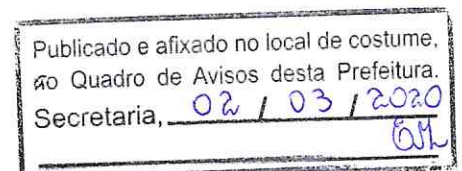 Publicado e afixado no local de costume,
no Quadro de Avisos desta Prefeitura.
Secretaria, 02 / 03 / 2020